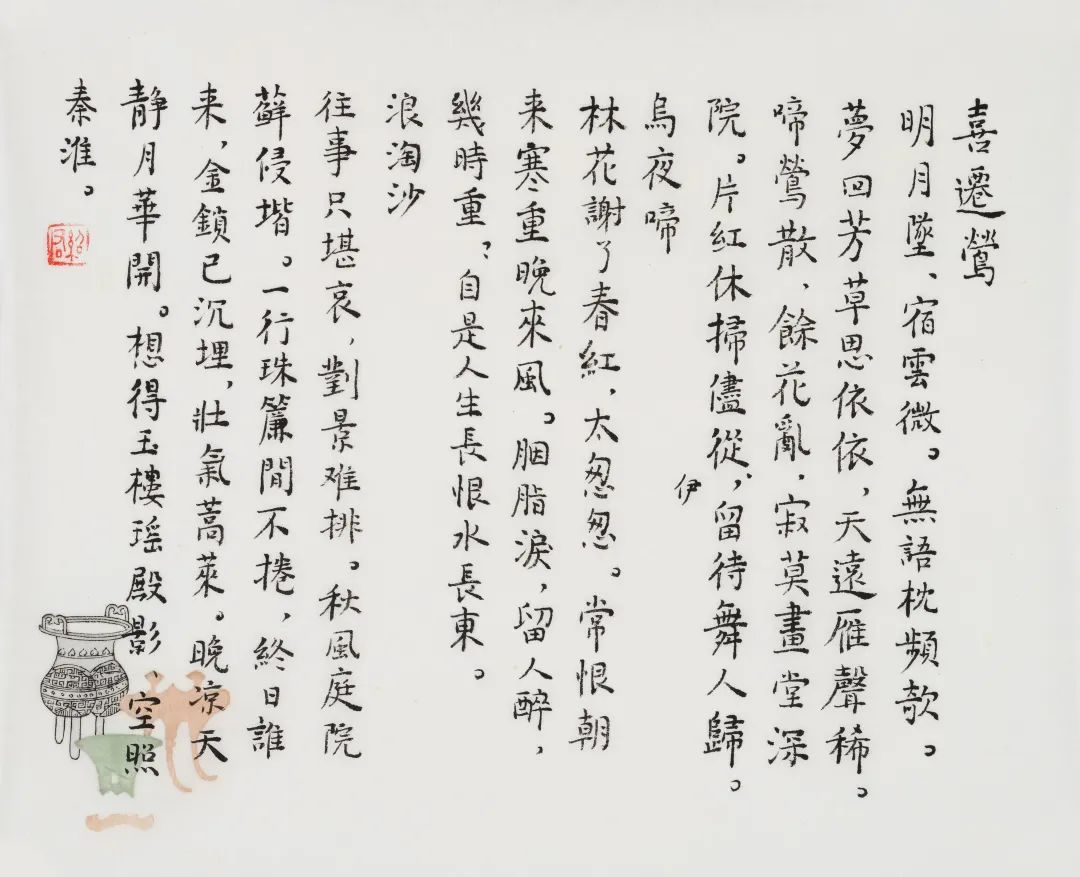 喜遷鶯
明月墜、宿雲微。無語枕頻欹。
夢回芳草思依依，天遠雁聲稀。
啼鶯散、餘花亂，寂莫畫堂深
院。片紅休掃儘從，留待舞人歸。
伊
烏夜啼
林花謝了春紅，太怱怱。常恨朝
来寒重晚來風。胭脂淚，留人醉，
幾時重，自是人生長恨水長東。
浪淘沙
往事只堪哀，對景难排。秋風庭院
蘚侵堦。一行珠簾閒不捲，終日誰
来，金鎖已沉埋，壯氣蒿萊。晚凉天
静月華開。想得玉樓瑶殿影、空照
秦淮。